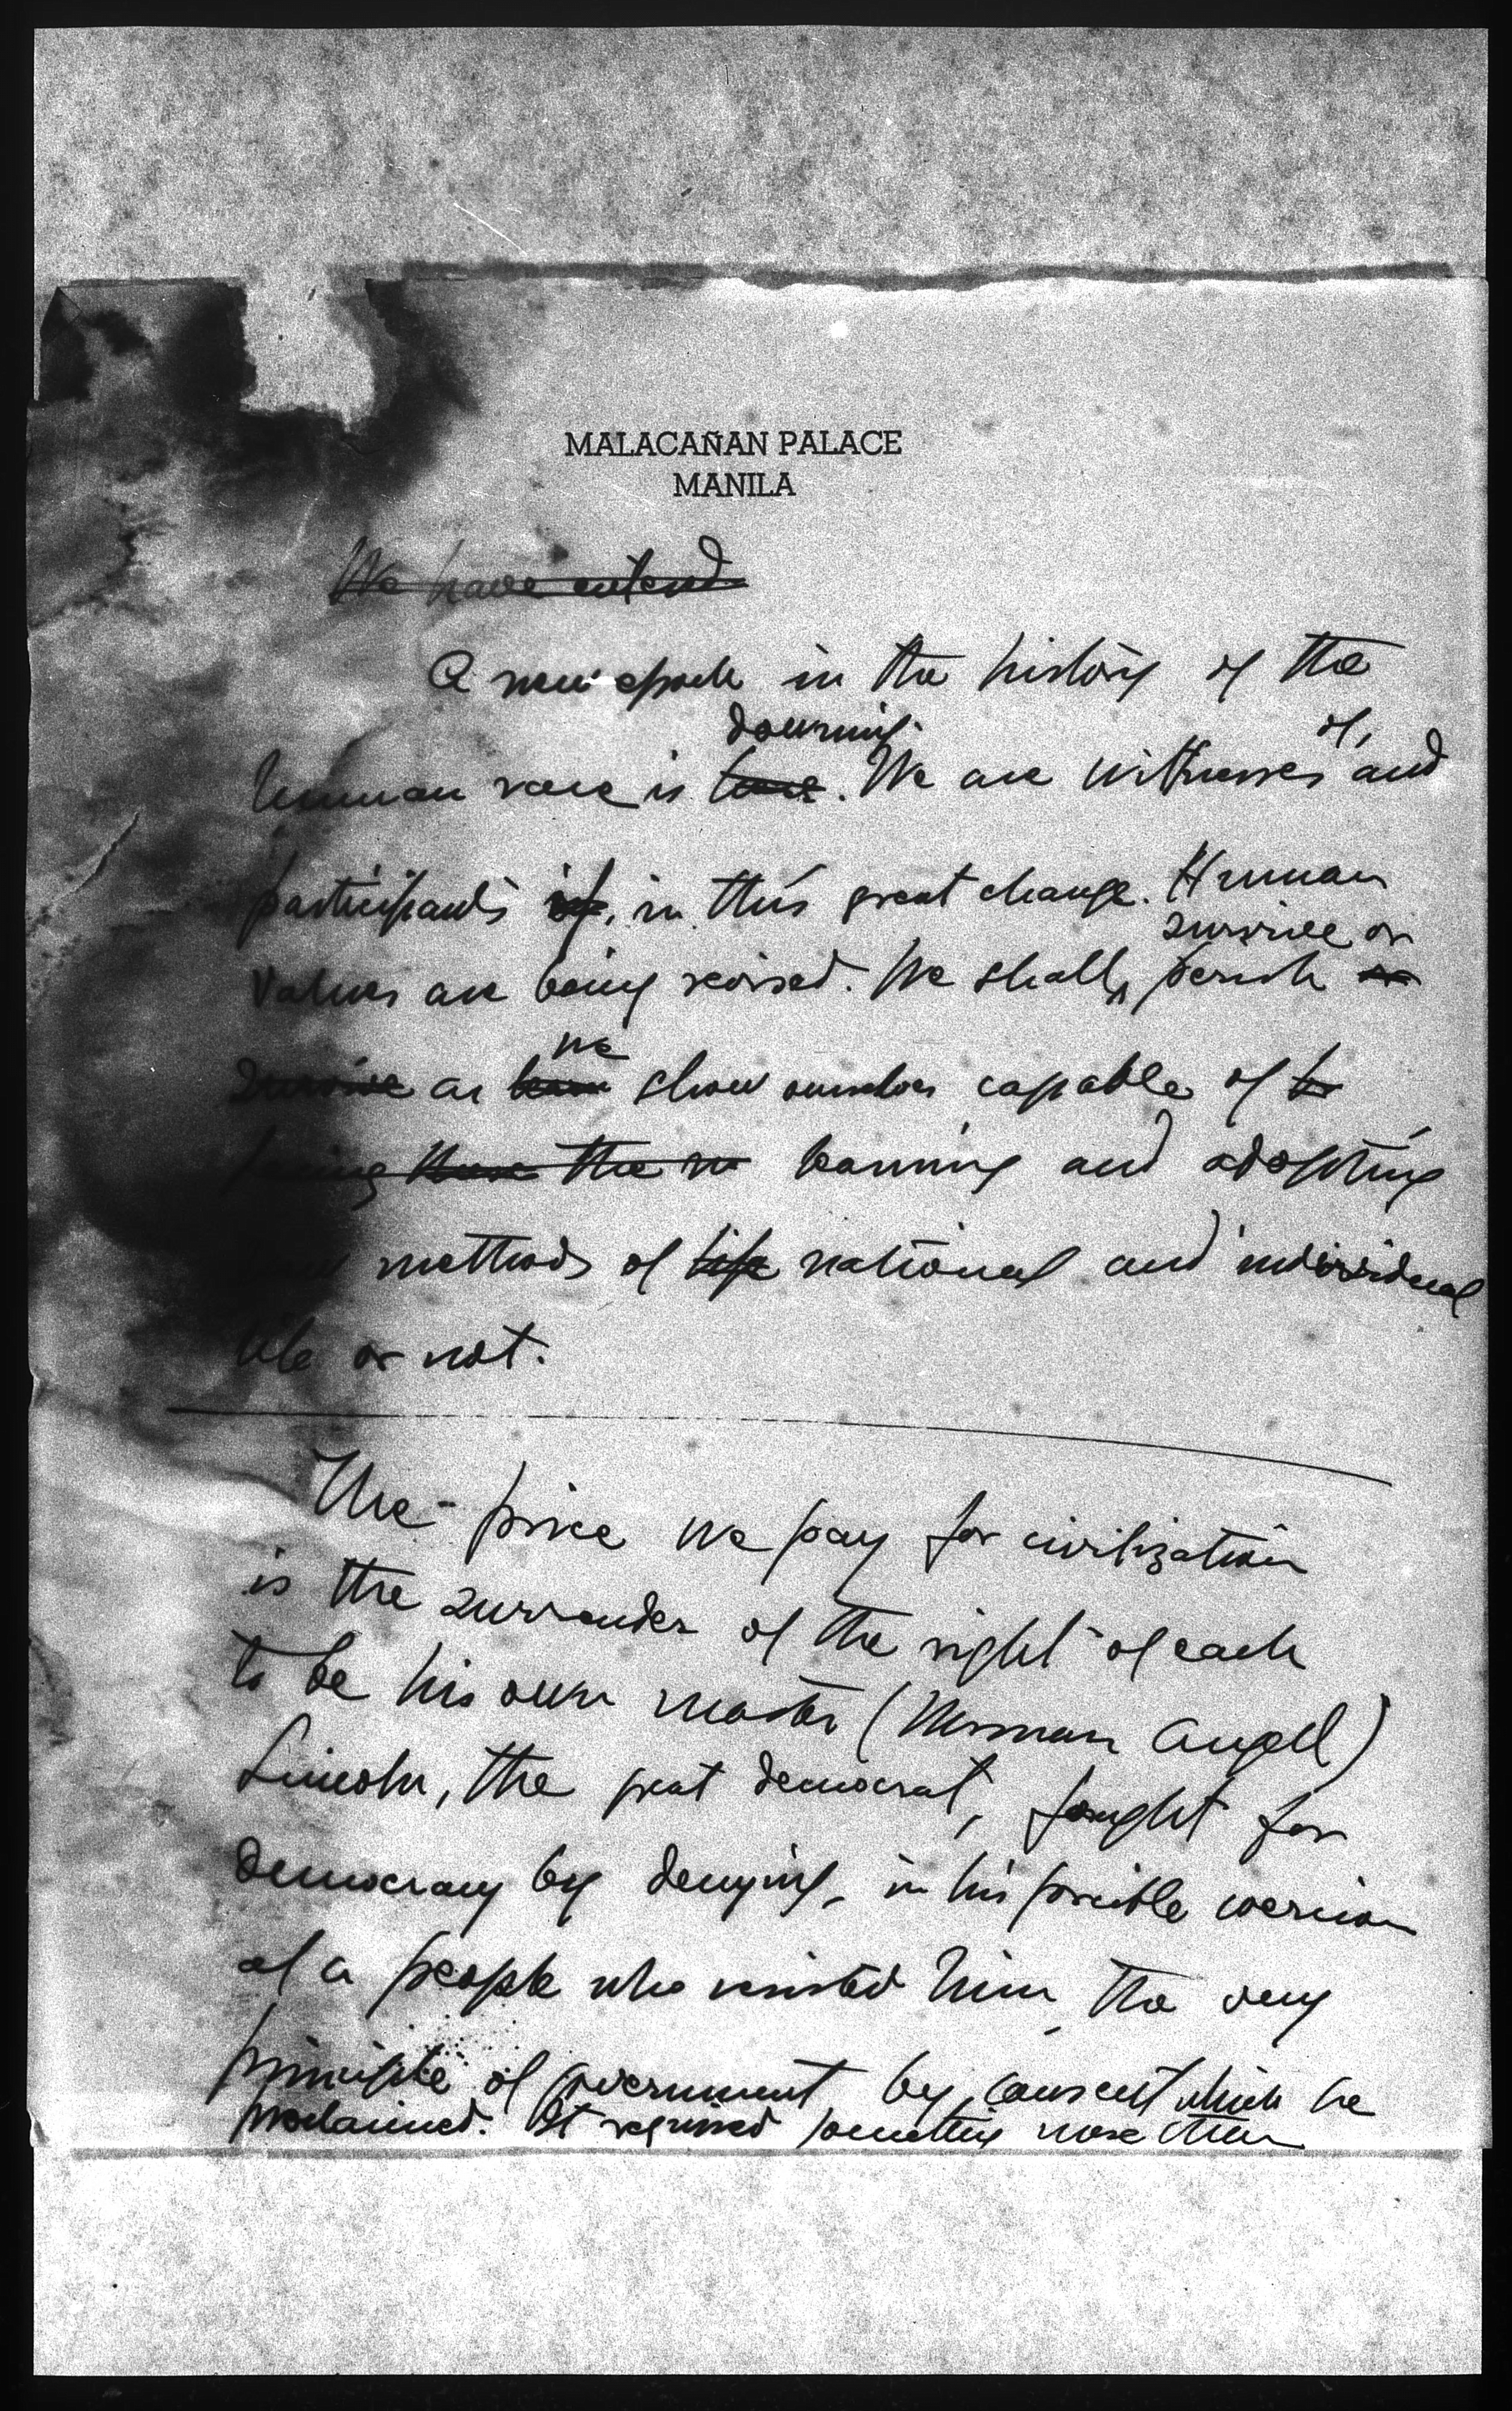 MALACAÑAN PALACE
MANILA
We have entered
A new epoch in the history of the
dawning of,
human race is here. We are witnesses and
participants of, in this great change. Human
survive or
values are being revised. We shall perish or
we
survive as show ourselves capable of to
being the learning and adopting
methods of life national and individual
life or not.
The price we pay for civilization
is the surrender of the right of each
to be his own master (Norman Angell)
Lincoln, the great democrat, fought for
democracy by denying, in his forcible coercion
of a people who resisted him, the very
principle of government by consent which he
proclaimed. It required something more than